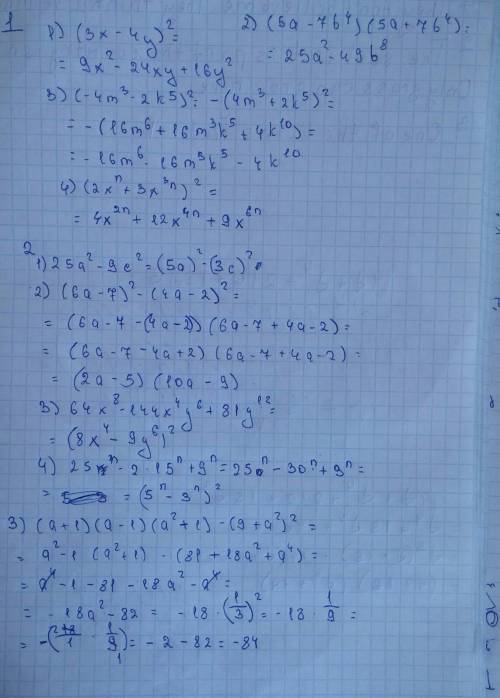 1
1) (3x - 4y)² =
= 9x² - 24xy + 16y²
2) (5a - 7b⁴) (5a + 7b⁴) =
= 25a² - 49b⁸
3) (-4m³ - 2k⁵)² = -(4m³ + 2k⁵)² =
= -(16m⁶ + 16m³k⁵ + 4k¹⁰) =
= -16m⁶ - 16m³k⁵ - 4k¹⁰
4) (2xⁿ + 3x³ⁿ)² =
= 4x²ⁿ + 12x⁴ⁿ + 9x⁶ⁿ
2
1) 25a² - 9c² = (5a)² - (3c)²
2) (6a - 7)² - (4a - 2)² =
= (6a - 7 - (4a - 2)) (6a - 7 + 4a - 2) =
= (6a - 7 - 4a + 2) (6a - 7 + 4a - 2) =
= (2a - 5) (10a - 9)
3) 64x⁸ - 144x⁴y⁶ + 81y¹² =
= (8x⁴ - 9y⁶)²
4) 25ⁿ - 2 · 15ⁿ + 9ⁿ = 25ⁿ - 30ⁿ + 9ⁿ =
= = (5ⁿ - 3ⁿ)²
3) (a + 1) (a - 1) (a² + 1) - (9 + a²)² =
= a² - 1 (a² + 1) - (81 + 18a² + a⁴) =
= a⁴ - 1 - 81 - 18a² - a⁴ =
= - 18a² - 82 = - 18 · (1/3)² = - 18 · 1/9 =
= -(18/1 · 1/9) = - 2 - 82 = -84